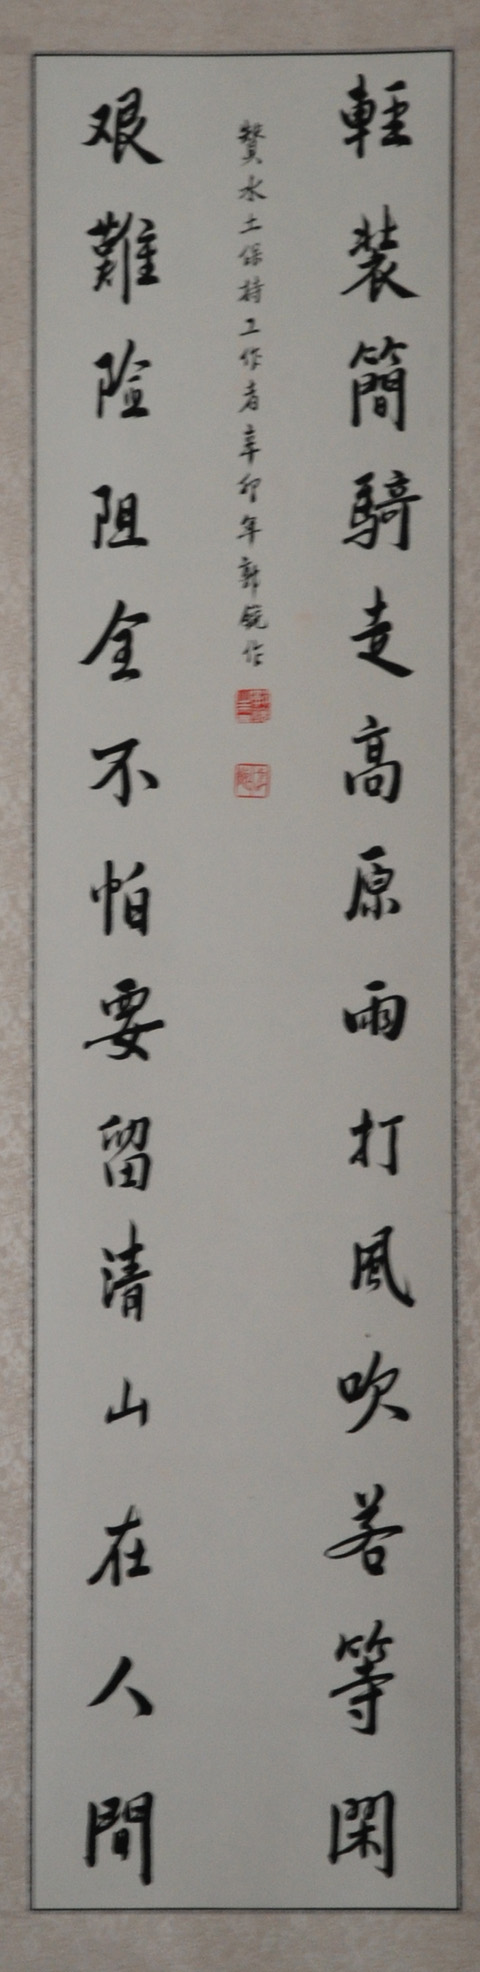 輕裝簡騎走高原雨打風吹若等閑
艰難险阻全不怕要留清山在人間
贊水土保持工作者辛卯年郭锐作